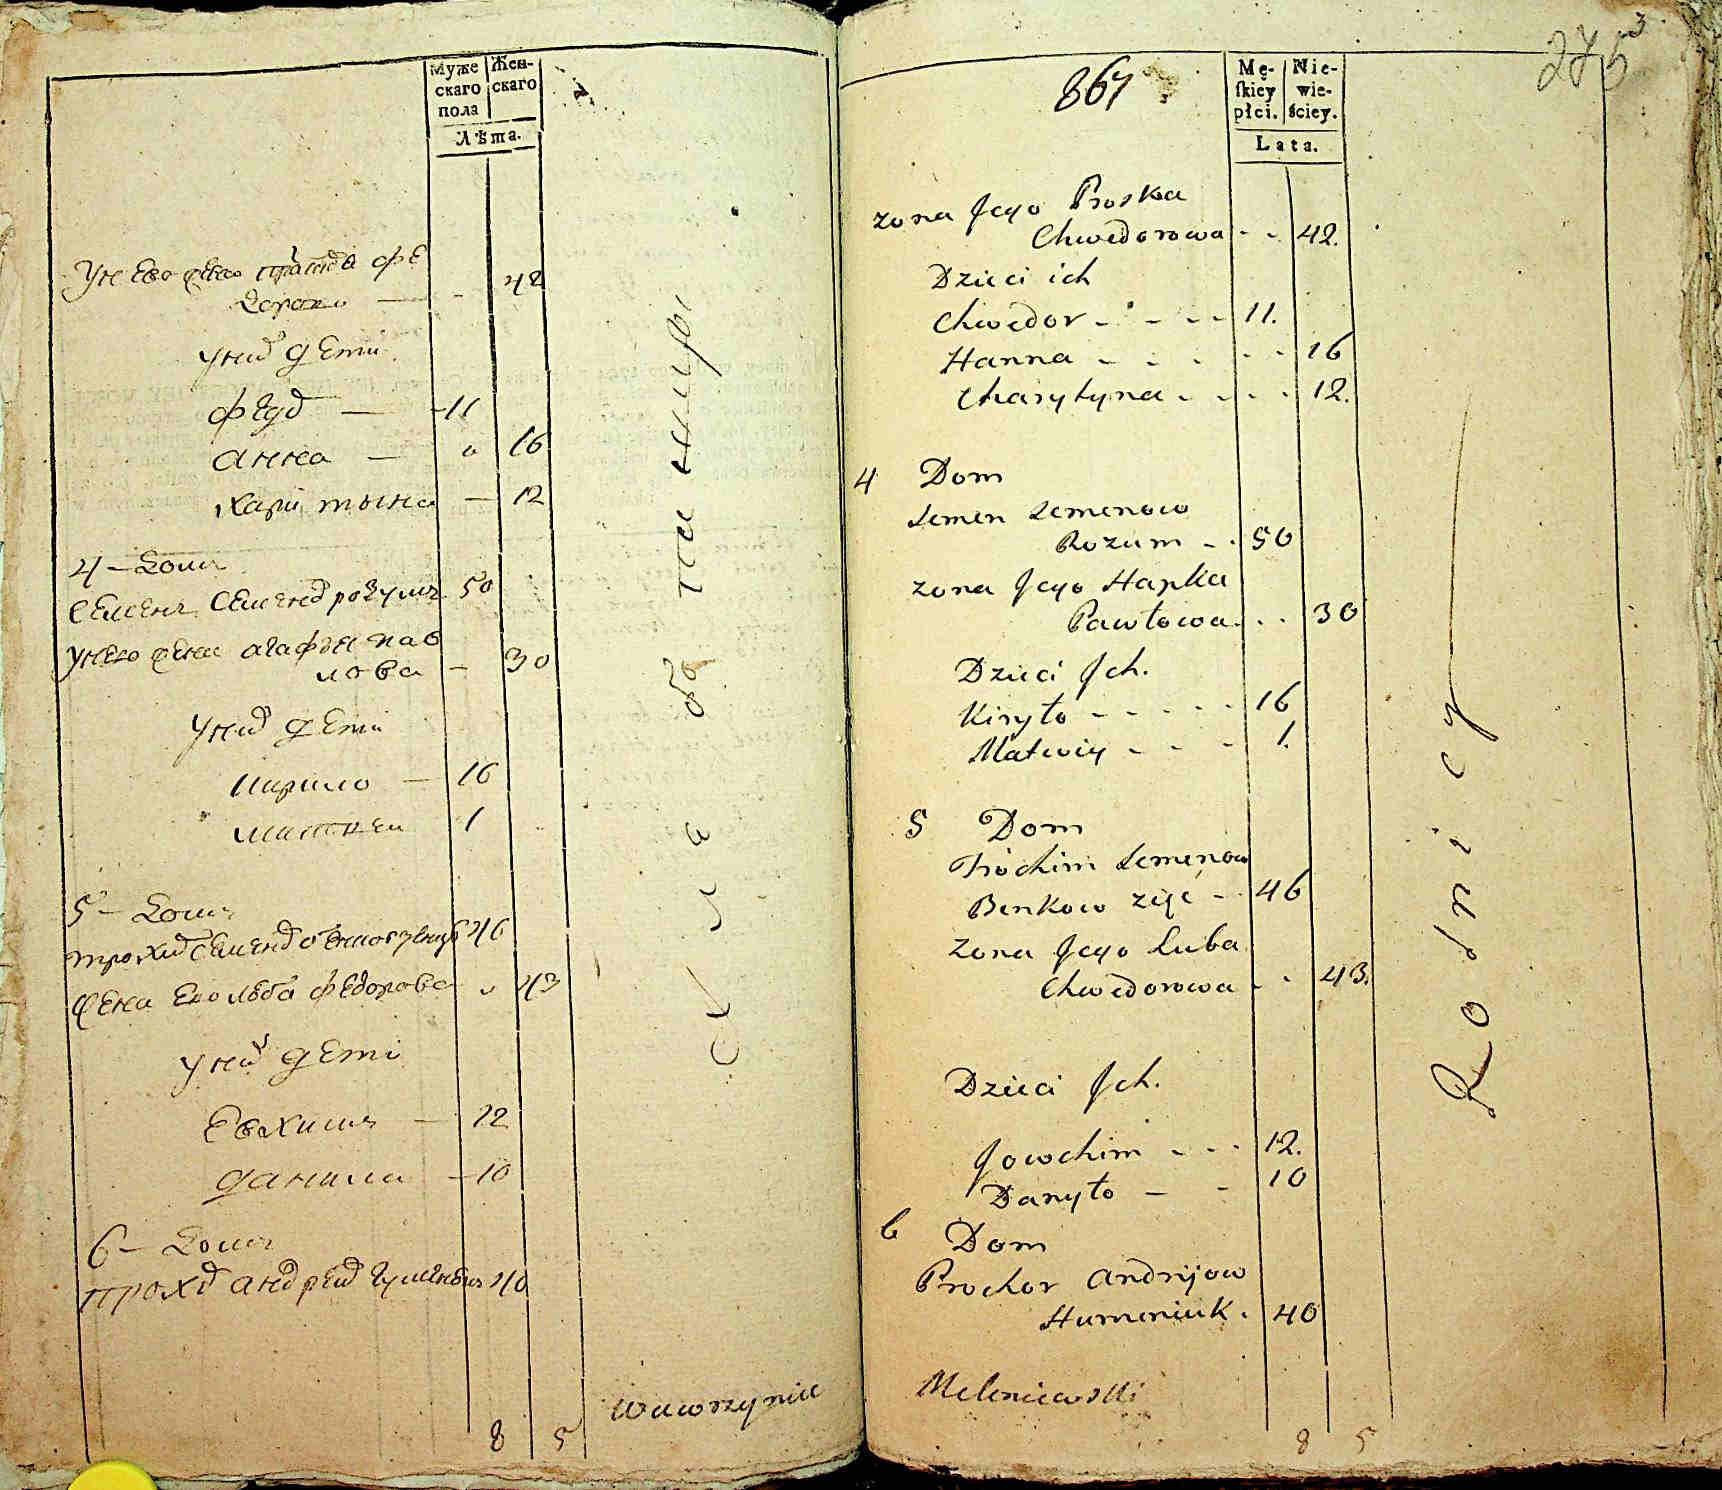 Муже
скаго
пола
Жен-
скаго
Лѣта.
42
у них дети
Федор — 11
анна — 16
харитына — 12
4 — домъ
Семенъ Семенов розумъ 50
у него жена агафия пав
лова — 30
у них дети
кирило — 16
матвей 1
5 — домъ
46
жена его люба федорова 43
у них дети
Евхимъ — 12
данила — 10
6 — домъ
прохор андреев гуменюкъ 40
Wawrzyniec
8 5
867
275
3
Mę-
skiey
płci.
Nie-
wie-
ściey.
Lata.
zona Jego Proska
Chwedorowa - - 42.
Dzieci ich
Chwedor - - - - 11.
Hanna - - - - - 16
Charytyna - - - - 12.
4 Dom
Semen Semenow
Rozum - - 50
zona Jego Hapka
Pawłowa - - 30
Dzieci Jch.
Kiryło - - - - - 16
Matwiy - - - 1.
5 Dom
Trochim Semenow
Benkow zięć - - 46
zona Jego Luba
Chwedorowa - - 43.
Dzieci Jch.
Jowchim - - - 12.
Danyło - - 10
6 Dom
Prochor Andrijow
Humeniuk. 40
Rodnicy
Meleniewski
8 5